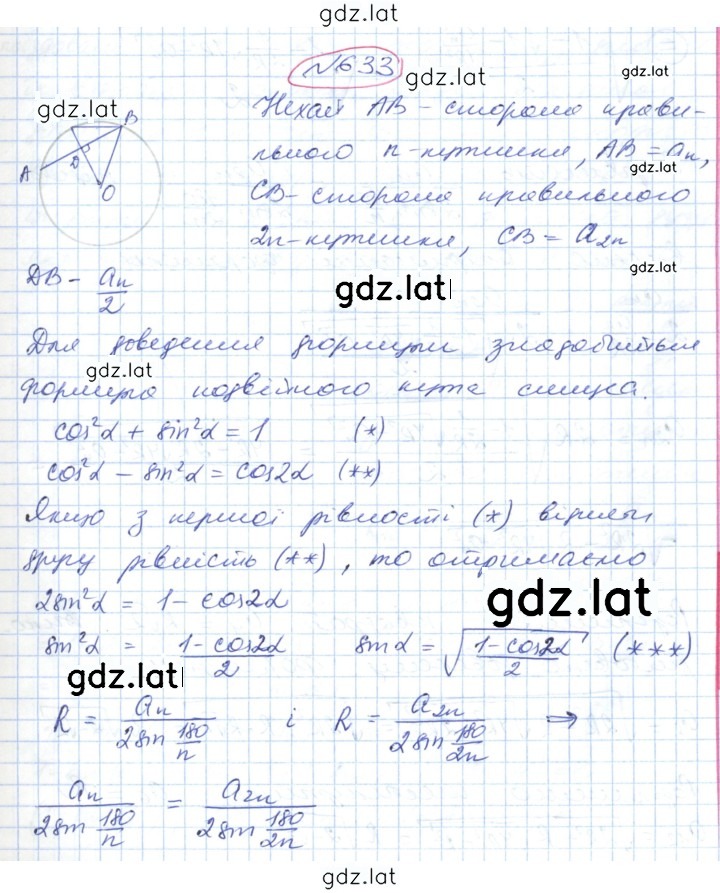 gdz.lat
№633
gdz.lat
gdz.lat
gdz.lat
Нехай AB - сторона прави-
льного n-кутника, AB = aₙ,
gdz.lat
CB - сторона правильного
2n-кутника, CB = a₂ₙ
gdz.lat
A B D O
DB - aₙ/2
gdz.lat
Для доведення формули знадобиться
gdz.lat
формула подвійного кута синуса.
cos²α + sin²α = 1 (*)
cos²α - sin²α = cos2α (**)
Якщо з першої рівності (*) відняти
другу рівність (**), то отримаємо
2sin²α = 1 - cos2α
gdz.lat
sin²α = (1 - cos2α)/2 sinα = √((1 - cos2α)/2) (***)
gdz.lat
R = aₙ/(2sin 180/n) і R = a₂ₙ/(2sin 180/2n) ⇒
aₙ/(2sin 180/n) = a₂ₙ/(2sin 180/2n)
gdz.lat